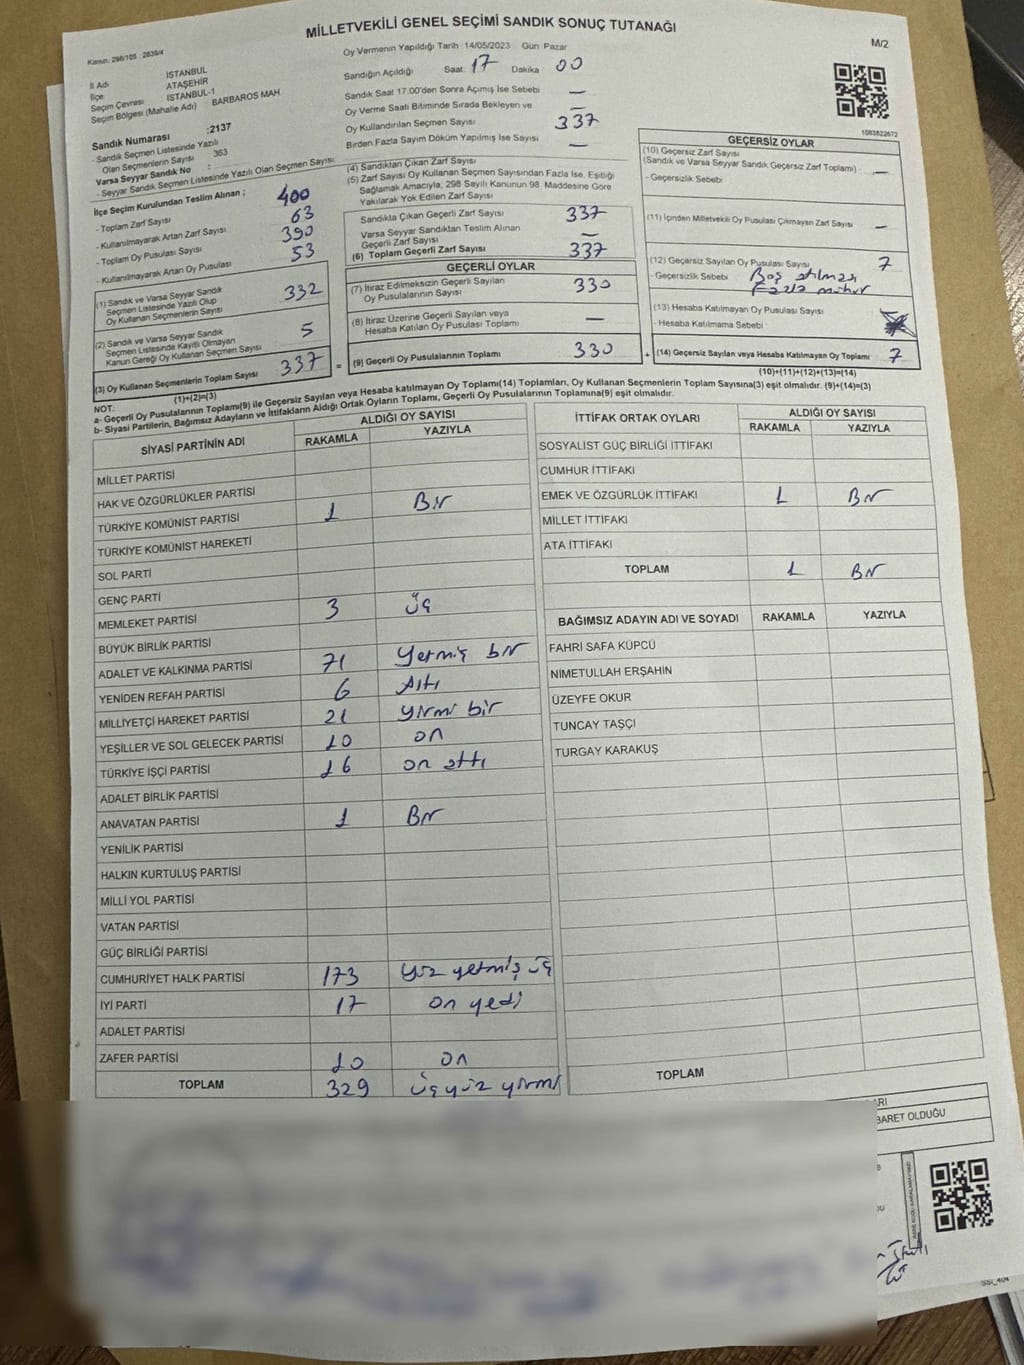 MİLLETVEKİLİ GENEL SEÇİMİ SANDIK SONUÇ TUTANAĞI
Kanun: 298/105 2839/4
M/2
İl Adı İSTANBUL
İlçe ATAŞEHİR
Seçim Çevresi İSTANBUL-1
Seçim Bölgesi (Mahalle Adı) BARBAROS MAH
Sandık Numarası :2137
- Sandık Seçmen Listesinde Yazılı
Olan Seçmenlerin Sayısı 363
Varsa Seyyar Sandık No :
- Seyyar Sandık Seçmen Listesinde Yazılı Olan Seçmen Sayısı:
İlçe Seçim Kurulundan Teslim Alınan ;
- Toplam Zarf Sayısı 400
- Kullanılmayarak Artan Zarf Sayısı 63
- Toplam Oy Pusulası Sayısı 390
- Kullanılmayarak Artan Oy Pusulası 53
(1) Sandık ve Varsa Seyyar Sandık
Seçmen Listesinde Yazılı Olup
Oy Kullanan Seçmenlerin Sayısı 332
(2) Sandık ve Varsa Seyyar Sandık
Seçmen Listesinde Kayıtlı Olmayan
Kanun Gereği Oy Kullanan Seçmen Sayısı 5
(3) Oy Kullanan Seçmenlerin Toplam Sayısı 337
(1)+(2)=(3)
Oy Vermenin Yapıldığı Tarih :14/05/2023 Gün: Pazar
Sandığın Açıldığı Saat: 17 Dakika 00
Sandık Saat 17.00'den Sonra Açımış İse Sebebi —
Oy Verme Saati Bitiminde Sırada Bekleyen ve
Oy Kullandırılan Seçmen Sayısı —
337
Birden Fazla Sayım Döküm Yapılmış İse Sayısı —
(4) Sandıktan Çıkan Zarf Sayısı
(5) Zarf Sayısı Oy Kullanan Seçmen Sayısından Fazla İse, Eşitliği
Sağlamak Amacıyla; 298 Sayılı Kanunun 98. Maddesine Göre
Yakılarak Yok Edilen Zarf Sayısı
Sandıkla Çıkan Geçerli Zarf Sayısı 337
Varsa Seyyar Sandıktan Teslim Alınan
Geçerli Zarf Sayısı —
(6) Toplam Geçerli Zarf Sayısı 337
GEÇERLİ OYLAR
(7) İtiraz Edilmeksizin Geçerli Sayılan
Oy Pusulalarının Sayısı 330
(8) İtiraz Üzerine Geçerli Sayılan veya
Hesaba Katılan Oy Pusulası Toplamı —
= (9) Geçerli Oy Pusulalarının Toplamı 330
1083822672
GEÇERSİZ OYLAR
(10) Geçersiz Zarf Sayısı
(Sandık ve Varsa Seyyar Sandık Geçersiz Zarf Toplamı) —
- Geçersizlik Sebebi
(11) İçinden Milletvekili Oy Pusulası Çıkmayan Zarf Sayısı —
(12) Geçersiz Sayılan Oy Pusulası Sayısı 7
- Geçersizlik Sebebi Boş atılması
Fazla mühür
(13) Hesaba Katılmayan Oy Pusulası Sayısı
- Hesaba Katılmama Sebebi :
+ (14) Geçersiz Sayılan veya Hesaba Katılmayan Oy Toplamı 7
(10)+(11)+(12)+(13)=(14)
NOT:
a- Geçerli Oy Pusulalarının Toplamı(9) ile Geçersiz Sayılan veya Hesaba katılmayan Oy Toplamı(14) Toplamları, Oy Kullanan Seçmenlerin Toplam Sayısına(3) eşit olmalıdır. (9)+(14)=(3)
b- Siyasi Partilerin, Bağımsız Adayların ve İttifakların Aldığı Ortak Oyların Toplamı, Geçerli Oy Pusulalarının Toplamına(9) eşit olmalıdır.
SİYASİ PARTİNİN ADI ALDIĞI OY SAYISI
RAKAMLA YAZIYLA
MİLLET PARTİSİ
HAK VE ÖZGÜRLÜKLER PARTİSİ
TÜRKİYE KOMÜNİST PARTİSİ 1 Bir
TÜRKİYE KOMÜNİST HAREKETİ
SOL PARTİ
GENÇ PARTİ
MEMLEKET PARTİSİ 3 üç
BÜYÜK BİRLİK PARTİSİ
ADALET VE KALKINMA PARTİSİ 71 Yetmiş bir
YENİDEN REFAH PARTİSİ 6 Altı
MİLLİYETÇİ HAREKET PARTİSİ 21 yirmi bir
YEŞİLLER VE SOL GELECEK PARTİSİ 10 on
TÜRKİYE İŞÇİ PARTİSİ 16 on altı
ADALET BİRLİK PARTİSİ
ANAVATAN PARTİSİ 1 Bir
YENİLİK PARTİSİ
HALKIN KURTULUŞ PARTİSİ
MİLLİ YOL PARTİSİ
VATAN PARTİSİ
GÜÇ BİRLİĞİ PARTİSİ
CUMHURİYET HALK PARTİSİ 173 yüz yetmiş üç
İYİ PARTİ 17 on yedi
ADALET PARTİSİ
ZAFER PARTİSİ 10 on
TOPLAM 329 üçyüz yirmi
İTTİFAK ORTAK OYLARI ALDIĞI OY SAYISI
RAKAMLA YAZIYLA
SOSYALİST GÜÇ BİRLİĞİ İTTİFAKI
CUMHUR İTTİFAKI
EMEK VE ÖZGÜRLÜK İTTİFAKI 1 Bir
MİLLET İTTİFAKI
ATA İTTİFAKI
TOPLAM 1 Bir
BAĞIMSIZ ADAYIN ADI VE SOYADI RAKAMLA YAZIYLA
FAHRİ SAFA KÜPCÜ
NİMETULLAH ERŞAHİN
ÜZEYFE OKUR
TUNCAY TAŞÇI
TURGAY KARAKUŞ
TOPLAM
ARI
BARET OLDUĞU
SSİ_404